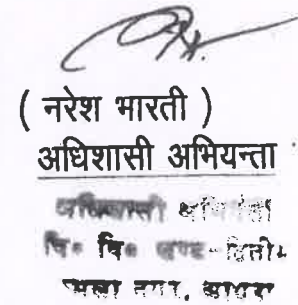 ( नरेश भारती )
अधिशासी अभियन्ता
अधिशासी अभियन्ता
वि० वि० खण्ड-द्विती०